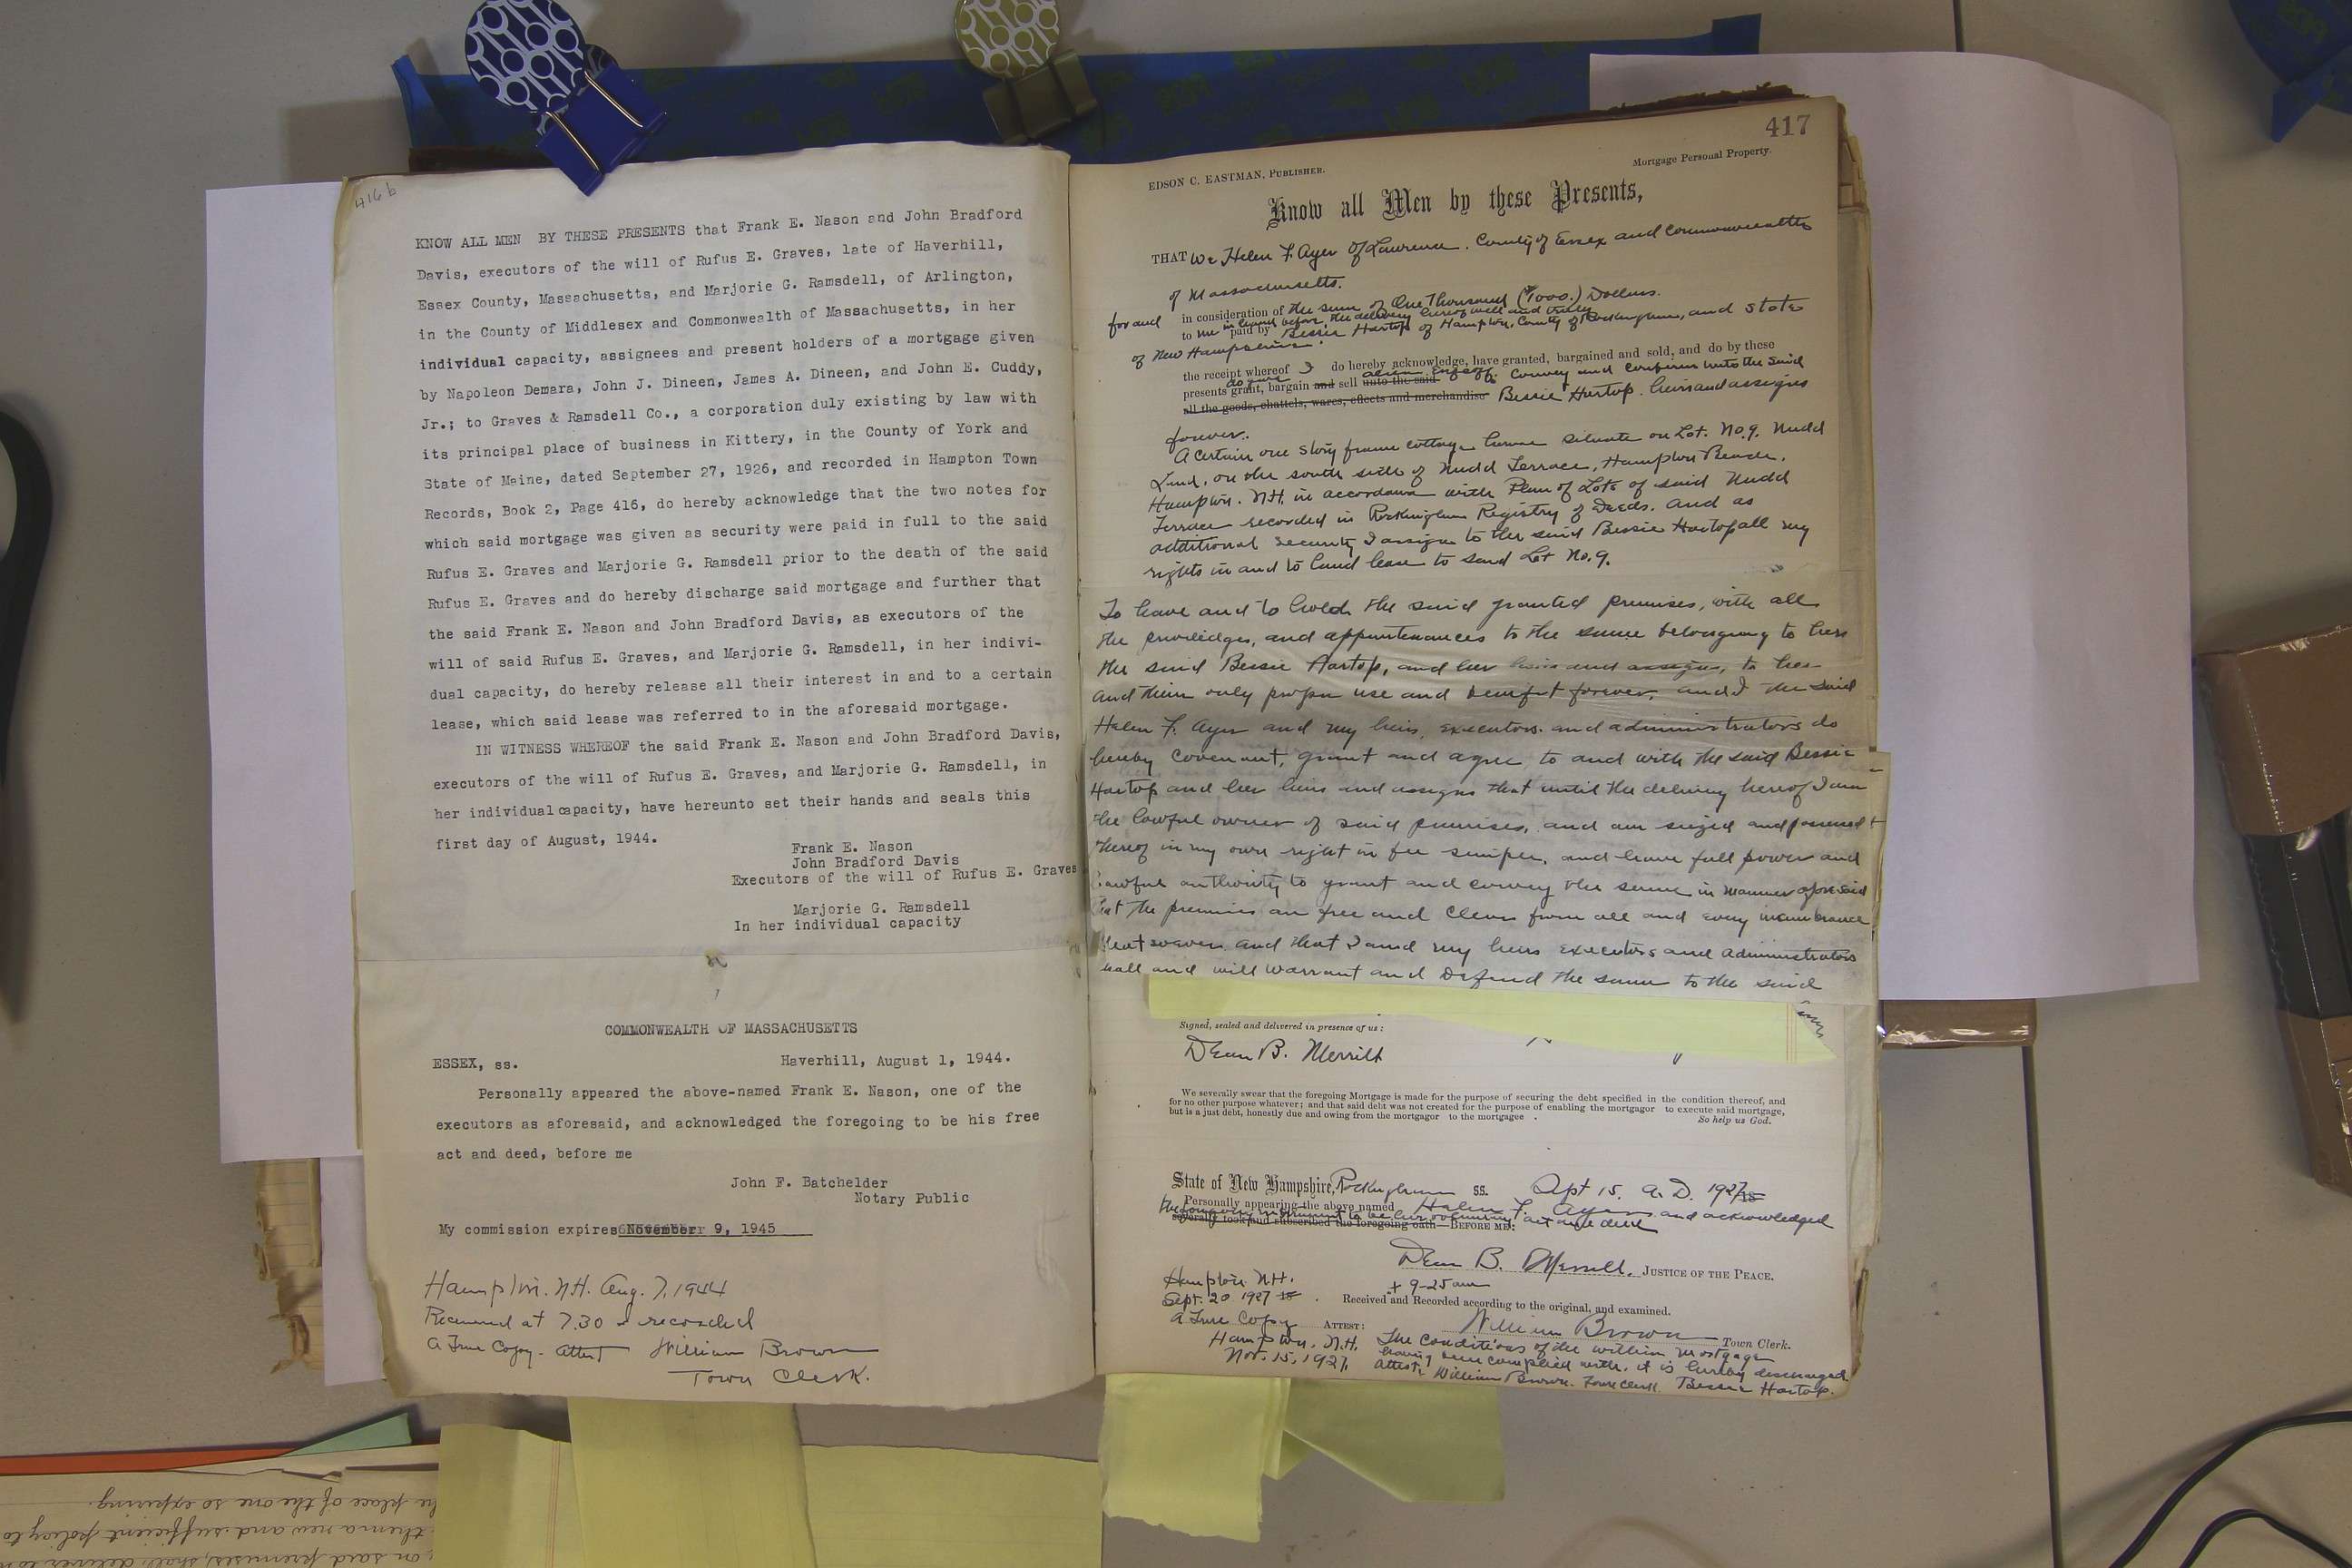 416 b
KNOW ALL MEN BY THESE PRESENTS that Frank E. Nason and John Bradford
Davis, executors of the will of Rufus E. Graves, late of Haverhill,
Essex County, Massachusetts, and Marjorie G. Ramsdell, of Arlington,
in the County of Middlesex and Commonwealth of Massachusetts, in her
individual capacity, assignees and present holders of a mortgage given
by Napoleon Demara, John J. Dineen, James A. Dineen, and John E. Cuddy,
Jr.; to Graves & Ramsdell Co., a corporation duly existing by law with
its principal place of business in Kittery, in the County of York and
State of Maine, dated September 27, 1926, and recorded in Hampton Town
Records, Book 2, Page 416, do hereby acknowledge that the two notes for
which said mortgage was given as security were paid in full to the said
Rufus E. Graves and Marjorie G. Ramsdell prior to the death of the said
Rufus E. Graves and do hereby discharge said mortgage and further that
the said Frank E. Nason and John Bradford Davis, as executors of the
will of said Rufus E. Graves, and Marjorie G. Ramsdell, in her indivi-
dual capacity, do hereby release all their interest in and to a certain
lease, which said lease was referred to in the aforesaid mortgage.
IN WITNESS WHEREOF the said Frank E. Nason and John Bradford Davis,
executors of the will of Rufus E. Graves, and Marjorie G. Ramsdell, in
her individual capacity, have hereunto set their hands and seals this
first day of August, 1944.
Frank E. Nason
John Bradford Davis
Executors of the will of Rufus E. Graves
Marjorie G. Ramsdell
In her individual capacity
COMMONWEALTH OF MASSACHUSETTS
ESSEX, ss. Haverhill, August 1, 1944.
Personally appeared the above-named Frank E. Nason, one of the
executors as aforesaid, and acknowledged the foregoing to be his free
act and deed, before me
John F. Batchelder
Notary Public
My commission expires November 9, 1945
Hampton. N.H. Aug. 7, 1944
Received at 7.30 & recorded
A True Copy. Attest William Brown
Town Clerk.
417
EDSON C. EASTMAN, PUBLISHER. Mortgage Personal Property.
Know all Men by these Presents,
THAT We Helen F. Ayer Of Lawrence. County of Essex and Commonwealth
of Massachusetts.
for and in consideration of the sum of One Thousand ($1000.) Dollars.
to me in hand before the delivery hereof well and truly
paid by Bessie Hartop of Hampton, County of Rockingham, and State
of New Hampshire.
the receipt whereof I do hereby acknowledge, have granted, bargained and sold, and do by these
presents do give grant, bargain and sell unto the said alien enfeoff Convey and confirm unto the said
all the goods, chattels, wares, effects and merchandise Bessie Hartop. heirs and assigns
forever.
A certain one story frame cottage house situate on Lot. No. 9. Nudd
Land, on the south side of Nudd Terrace, Hampton Beach,
Hampton. N.H. in accordance with Plan of Lots of said Nudd
Terrace recorded in Rockingham Registry of Deeds. And as
additional security I assign to the said Bessie Hartop all my
rights in and to land lease to said Lot No. 9.
To have and to hold the said granted premises, with all
the priviledges, and appurtenances to the same belonging to her
the said Bessie Hartop, and her heirs and assigns, to her
and their only proper use and benefit forever, and I the said
Helen F. Ayer and my heirs, executors and administrators do
hereby covenant, grant and agree to and with the said Bessie
Hartop and her heirs and assigns that until the delivery hereof I am
the lawful owner of said premises, and am seized and possessed
thereof in my own right in fee simple, and have full power and
lawful authority to grant and convey the same in manner aforesaid
that the premises are free and clear from all and every incumbrance
whatsoever and that I and my heirs executors and administrators
shall and will warrant and Defend the same to the said
Signed, sealed and delivered in presence of us:
Dean B. Merrill
We severally swear that the foregoing Mortgage is made for the purpose of securing the debt specified in the condition thereof, and
for no other purpose whatever; and that said debt was not created for the purpose of enabling the mortgagor to execute said mortgage,
but is a just debt, honestly due and owing from the mortgagor to the mortgagee.
So help us God.
State of New Hampshire, Rockingham ss. Sept 15. A.D. 1927 18
Personally appearing the above named Helen F. Ayer and acknowledged
the foregoing instrument to be her voluntary act and deed
severally took and subscribed the foregoing oath—BEFORE ME:
Dean B. Merrill. JUSTICE OF THE PEACE.
Hampton N.H. + 9-25 am
Sept. 20 1927 18 Received and Recorded according to the original, and examined.
A True Copy ATTEST: William Brown Town Clerk.
Hampton, N.H. The conditions of the within mortgage
Nov. 15, 1927. having been complied with, it is hereby discharged
Attest. William Brown. Town Clerk. Bessie Hartop.
the place of the one so expiring.
them a new and sufficient policy to
on said premises, shall deliver to